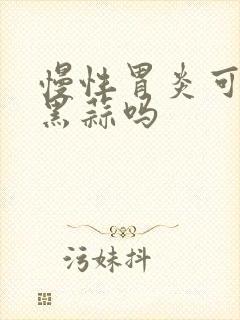 慢性胃炎可
黑蒜吗
污妹抖